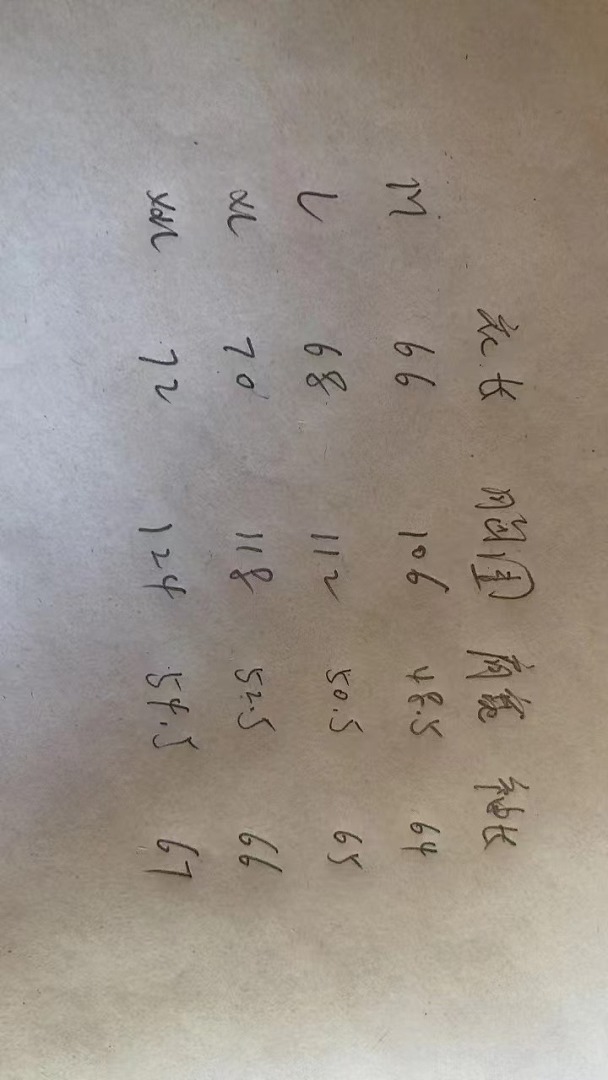 衣长 胸围 肩宽 袖长
M 66 106 48.5 64
L 68 112 50.5 65
XL 70 118 52.5 66
XXL 72 124 54.5 67